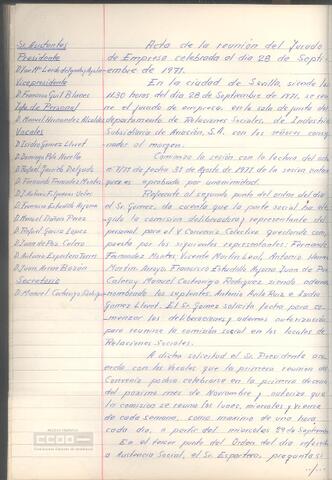 Sr. Asistentes
Presidente
Vicepresidente
D. Francisco Gil Blanes
Jefe de Personal
D. Manuel Hernandez
Vocales
D. Isidro Gomez Lloret
D. Domingo Polo Novella
D. Rafael Garrido Delgado
D. Fernando Fernandez Montes
D. Antonio Herrera
D. Francisco Estudillo Arjona
D. Manuel Perez
D. Rafael Garcia Lopez
D. Juan de Paz Calero
D. Antonio Espartero Torres
D. Juan Bazán
Secretario
D. Manuel Castañizo Rodriguez
Acta de la reunión del Jurado
de Empresa celebrada el dia 28 de Septi-
embre de 1971.
En la ciudad de Sevilla, siendo las
11,30 horas del dia 28 de Septiembre de 1971, se reu
ne el jurado de empresa, en la sala de juntas del
departamento de Relaciones Sociales, de Industria
Subsidiaria de Aviación, S.A. con los señores consig-
nados al margen.
Comienza la sesión con la lectura del acta
nº 7/71 de fecha 31 de Agosto de 1971 de la sesión anterior
que es aprobada por unanimidad.
Referente al segundo punto del orden del dia
el Sr. Gomez, da cuenta que la parte social ha ele-
gido la comisión deliberadora y representante del
personal para el V Convenio Colectivo quedando com-
puesta por los siguientes representantes: Fernando
Fernandez Montes, Vicente Martin Leal, Antonio
Martin Arroyo, Francisco Estudillo Arjona, Juan de Paz
Calero y Manuel Castañizo Rodriguez siendo además
nombrado los suplentes Antonio Avila Ruiz e Isidro
Gomez Lloret. El Sr. Gomez solicita fecha para co-
menzar las deliberaciones y además autorización
para reunirse la comisión social en los locales de
Relaciones Sociales.
A dicha solicitud el Sr. Presidente acu-
erda con los Vocales que la primera reunión del
Convenio podria celebrarse en la primera decena
del próximo mes de Noviembre y autoriza que
la comisión se reuna los lunes, miercoles y viernes
de cada semana, como máximo de una hora
cada dia, a partir del miercoles 29 de Septiembre
En el tercer punto del Orden del dia referente
a Asistencia Social, el Sr. Espartero, pregunta si
../..
ARCHIVO HISTÓRICO
CCOO
Comisiones Obreras de Andalucía